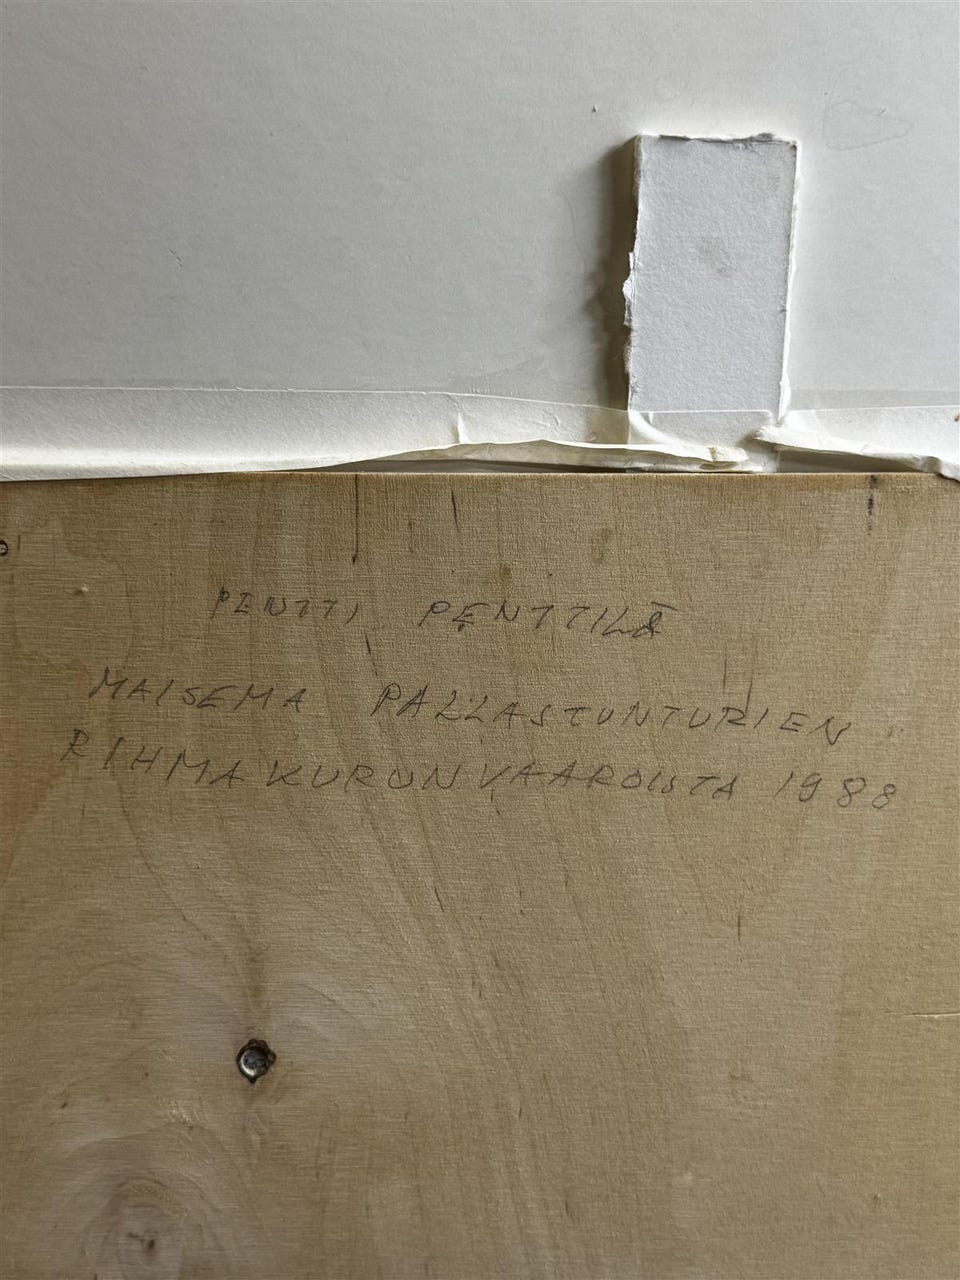 PENTTI PENTTILÄ
MAISEMA PALLASTUNTURIEN
RIHMAKURUN VAAROISTA 1988